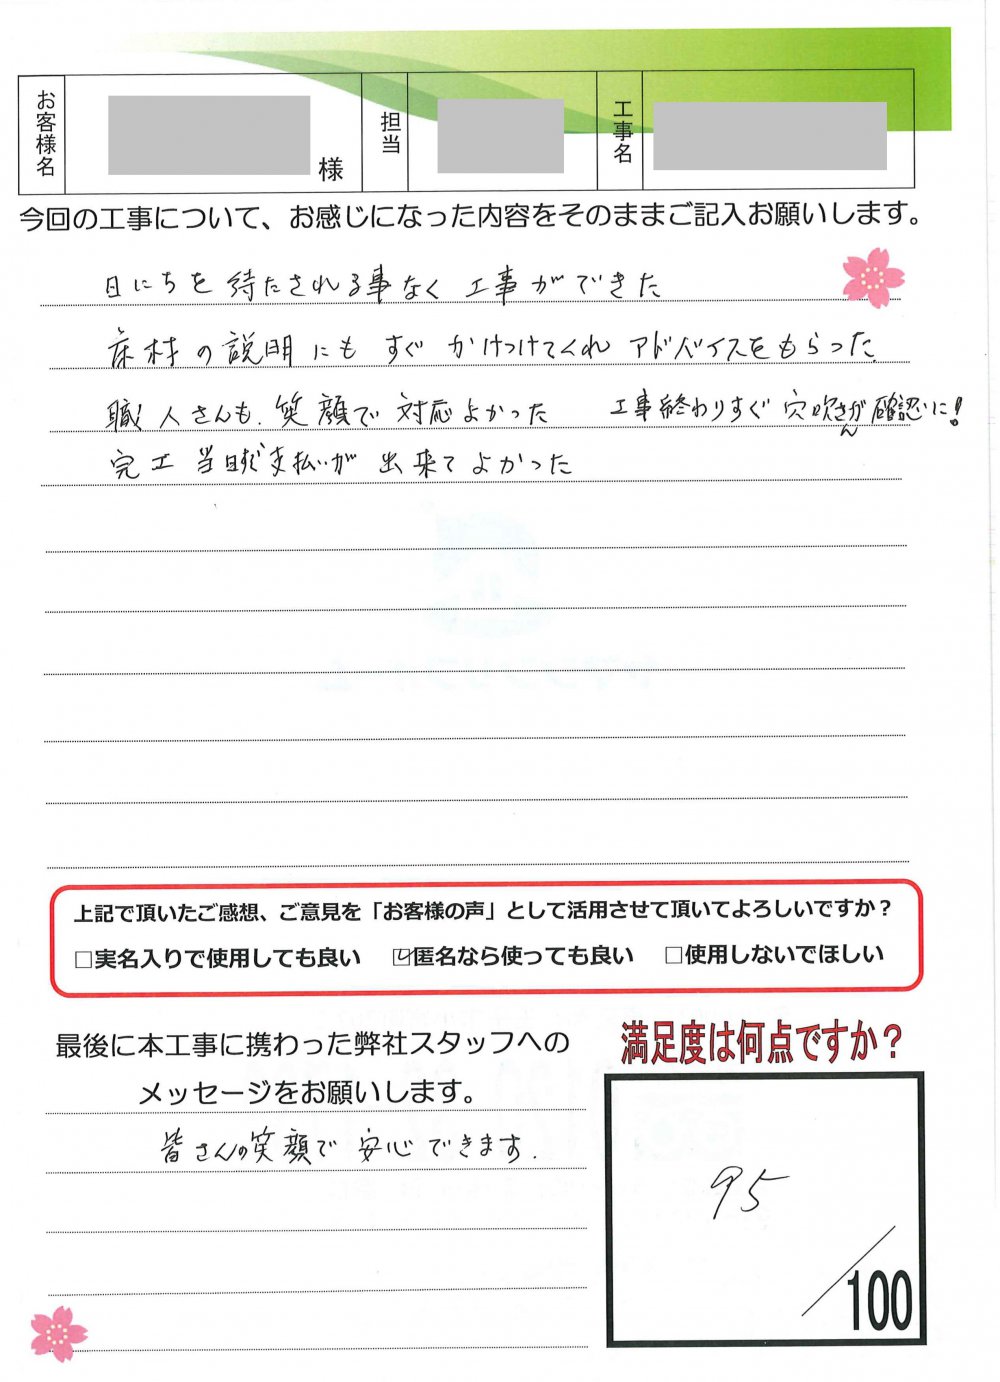 お客様名
様
担当
工事名
今回の工事について、お感じになった内容をそのままご記入お願いします。
日にちを待たされる事なく工事ができた
床材の説明にもすぐかけつけてくれアドバイスをもらった
職人さんも、笑顔で対応よかった 工事終わりすぐ穴吹さんが確認に!
完工当日に支払いが出来てよかった
上記で頂いたご感想、ご意見を「お客様の声」として活用させて頂いてよろしいですか？
□実名入りで使用しても良い ☑匿名なら使っても良い □使用しないでほしい
最後に本工事に携わった弊社スタッフへの
メッセージをお願いします。
皆さんの笑顔で安心できます.
満足度は何点ですか？
95
/100